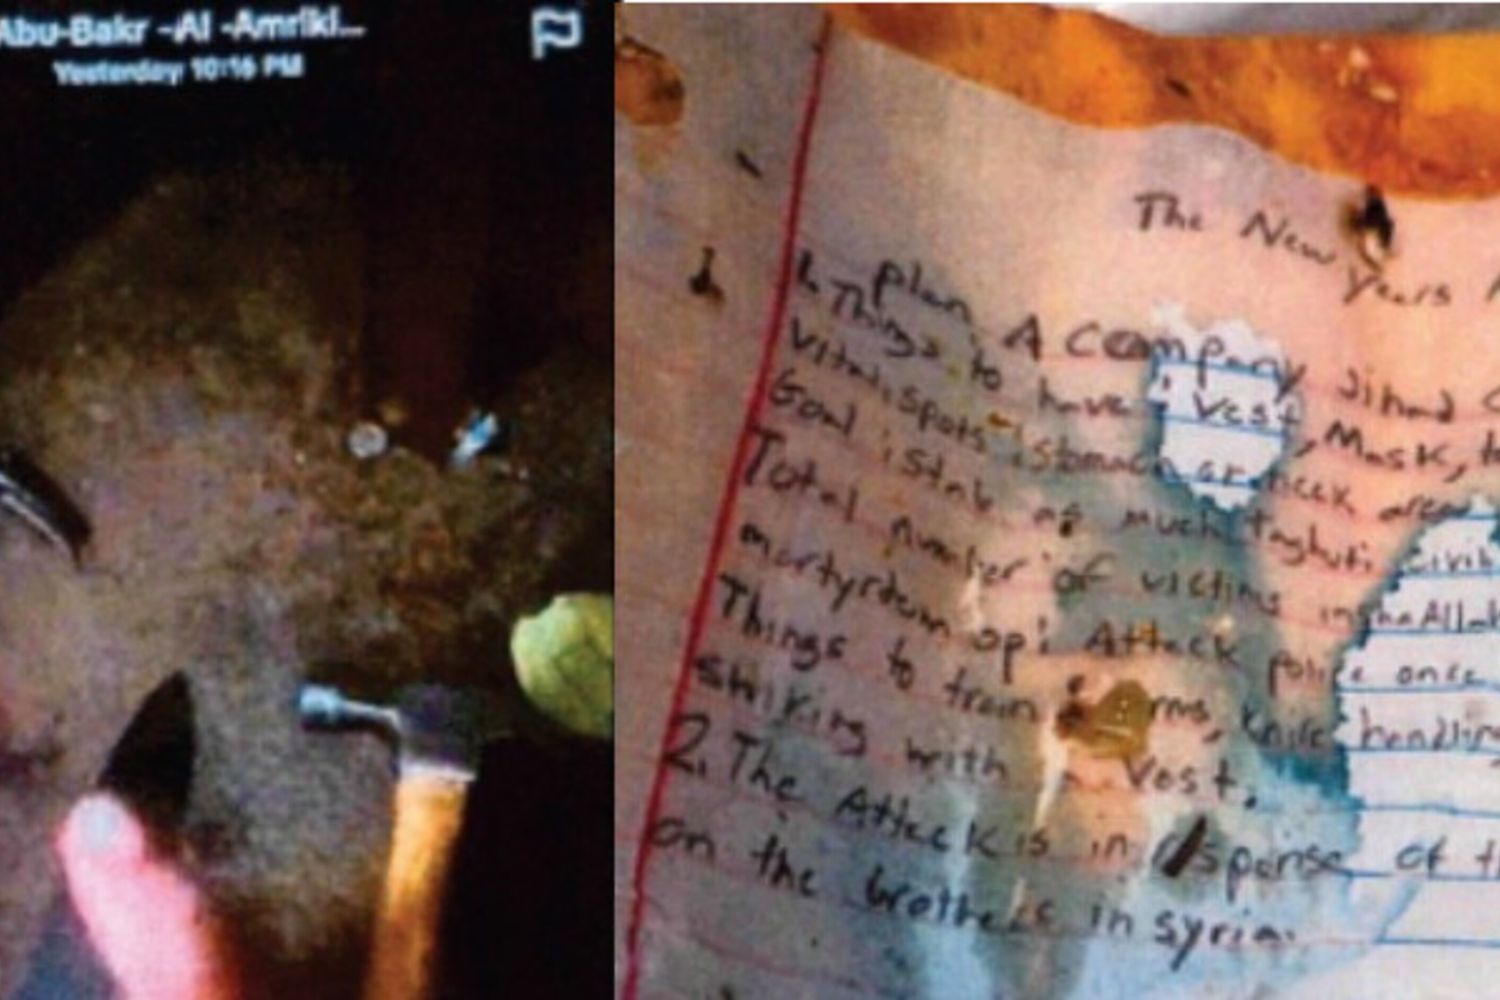 Abu-Bakr -Al -Amriki...
Yesterday 10:16 PM
The New Years
plan A Company Jihad
1. Things to have : Vest, Mask,
Vital spots : stomach or neck area
Goal : Stab as much taghuti
Total number of victims inshaAllah
martyrdom op : Attack police once
Things to train : knife handling
striking with a Vest.
2. The Attack is in of
on the brothers in Syria.